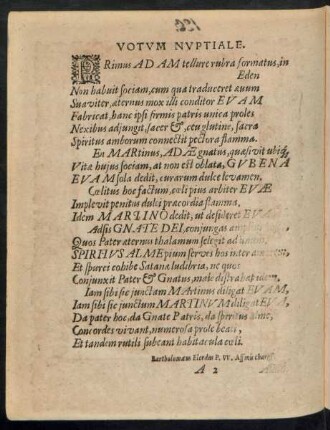 VOTVM NVPTIALE.
PRimus ADAM tellure rubra formatus, in
Eden
Non habuit sociam, cum qua traduceret ævum
Suaviter, æternus mox illi conditor EVAM
Fabricat, hanc ipsi firmis patris unica proles
Nexibus adjungit, sacer &, ceu glutine, sacra
Spiritus amborum connectit pectora flamma.
En MARtinus, ADÆ gnatus, quasivit ubiq;
Vita hujus sociam, at non est oblata, GUBENA
EVAM sola dedit, curarum dulce levamen,
Cœlitus hoc factum, cœli pius arbiter EVÆ
Implevit penitus dulci præcordia flamma,
Idem MARTINO dedit, ut desideret
Adsis GNATE DEI, conjungas
Quos Pater æternus thalamum selegit ad
SPIRITUS ALME pium serves hos inter
Et spurci cohibe Satanæ ludibria, ne quos
Conjunxit Pater & Gnatus, male distrahat idem,
Jam sibi sic junctam MARtinus diligat EVAM,
Jam sibi sic junctum MARTINUM diligat EVA,
Da pater hoc, da Gnate Patris, da spiritus alme,
Concordes vivant, numerosa prole beati,
Et tandem rutili subeant habitacula cœli.
Bartholomæus P. VV. Affinis
A 2